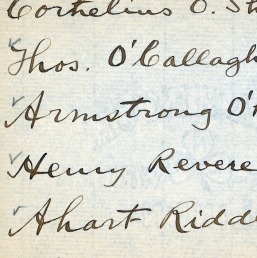 Cornelius O. St
Thos. O'Callagh
Armstrong O'
Henry Revere
Ahart Ridd